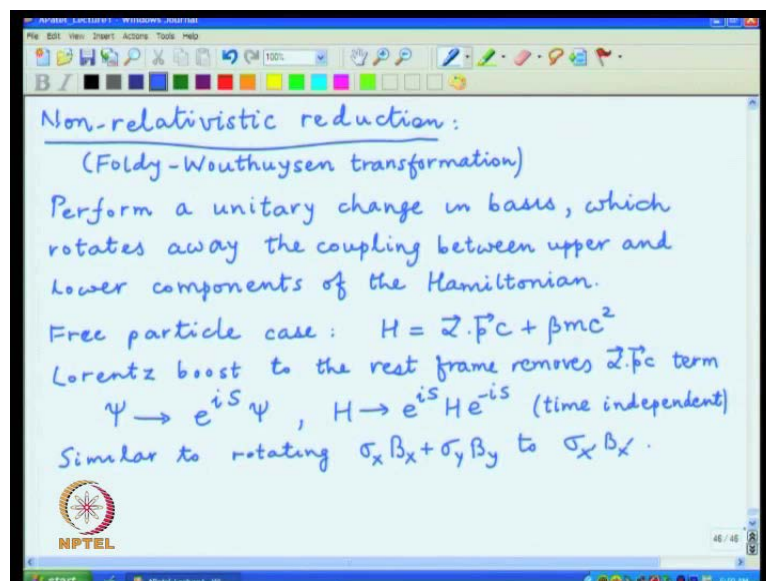 File Edit View Insert Actions Tools Help
100%
B I
Non-relativistic reduction:
(Foldy-Wouthuysen transformation)
Perform a unitary change in basis, which
rotates away the coupling between upper and
lower components of the Hamiltonian.
Free particle case: H = α⃗.p⃗c + βmc²
Lorentz boost to the rest frame removes α⃗.p⃗c term
Ψ → e^{iS} Ψ , H → e^{iS} H e^{-iS} (time independent)
Similar to rotating σ_x B_x + σ_y B_y to σ_x' B_x'.
NPTEL
46/46
start